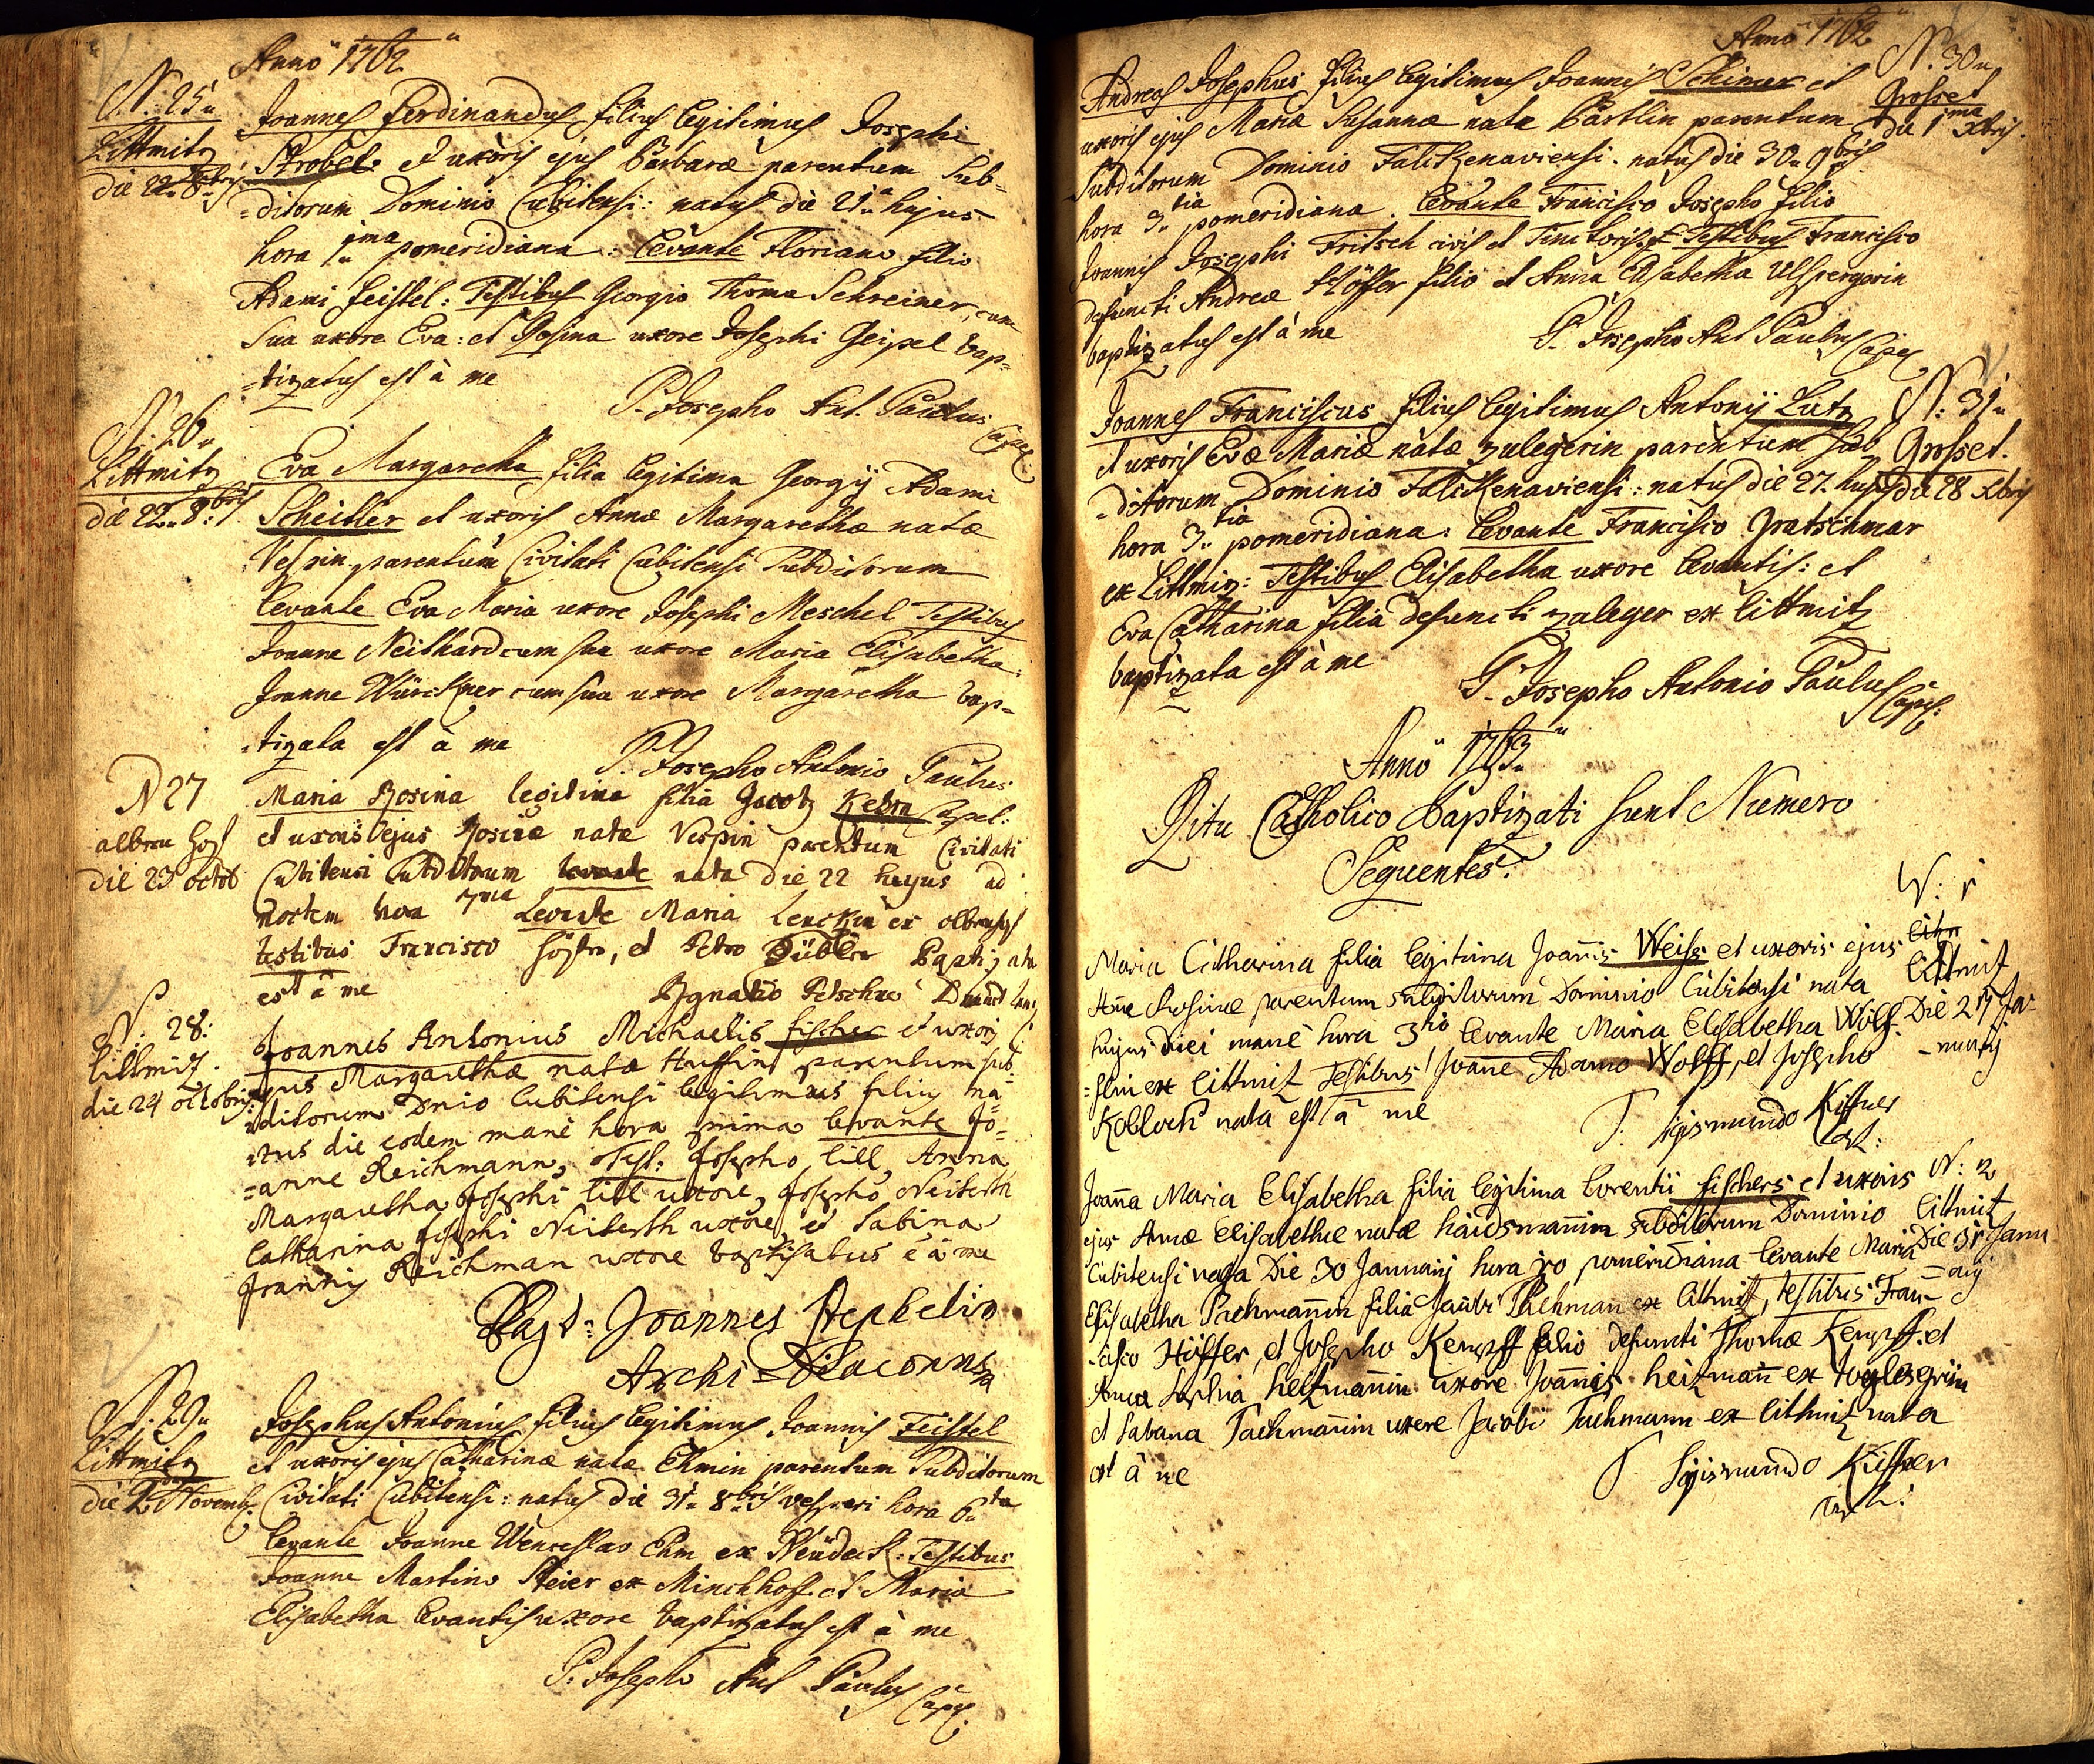 Anno 1762
N. 25
Littmitz
die 22 8bris
Joannes Ferdinandus filius legitimus Josephi
Strobel et uxoris ejus Barbaræ parentum Sub=
=ditorum Dominio Cubitensi: natus die 21 hujus
hora 1ma pomeridiana: levante Floriano filio
Adami Feistel: Testibus Georgio Thoma Schreiner, cum
sua uxore Eva: et Rosina uxore Josephi Geipel bap=
=tizatus est à me
P. Josepho Ant. Paulus Capel:
N. 26
Littmitz
die 22. 8bris
Eva Margaretha filia legitima Georgij Adami
Scheitler et uxoris Annæ Margarethæ natæ
parentum Civitati Cubitensi Subditorum
levante Eva Maria uxore Josephi Meschel Testibus
Joanne Neithard cum sua uxore Maria Elisabetha:
Joanne Würckner cum sua uxore Margaretha bap=
=tizata est à me
P. Josepho Antonio Paulus Capel:
N 27
die 23 octob
Maria Rosina legitima filia Jacob Kehrn
et uxoris ejus Rosinæ natæ Vespin parentum Civitati
Cubitensi Subditorum levante nata die 22 hujus ad
noctem hora 7ma Levante Maria ex
testibus Francisco et Petro Baptizata
est à me
Ignatio
N. 28:
Littmiz.
die 24 octobris
Joannes Antonius Michaelis fischer et uxoris
ejus Margarethæ natæ parentum sub=
=ditorum Dnio Cubitensi legitimus filius na=
=tus die eodem manè hora prima levante Jo=
=anne Reichmann, Test: Josepho lill, Anna
Margaretha Josephi lill uxore, Josepho Neiberth
Catharina Josephi Neiberth uxore, et Sabina
Joannis Reichman uxore baptisatus e à me
Joannes Stephelin
Archi=Diaconus
N. 29
Littmitz
die 2. Novemb:
Josephus Antonius filius legitimus Joannis Feistel
et uxoris ejus Catharinæ natæ Ehmin parentum Subditorum
Civitati Cubitensi: natus die 31. 8bris vesperi hora 6ta
levante Joanne Wenceslao Ehm ex Neudeck: Testibus
Joanne Martino Steier ex Minchhoff et Maria
Elisabetha levantis uxore baptizatus est à me
P. Josepho Ant Paulus Capel:
Anno 1762
N. 30
Grosset
die 1ma Xbris.
Andreas Josephus filius legitimus Joannis Schimer et
uxoris ejus Mariæ Susannæ natæ Bartlin parentum
Subditorum Dominio Falckenaviensi. natus die 30. 9bris
hora 3tia pomeridiana. levante Francisco Josepho filio
Joannis Josephi Fritsch civis et Tinctoris. Testibus Francisco
defuncti Andreæ Höffer filio et Anna Elisabetha
baptizatus est à me
P. Josepho Ant Paulus Capel
N. 31
Grosset.
die 28 Xbris
Joannes Franciscus filius legitimus Antonij Lutz
et uxoris Evæ Mariæ natæ Zulegerin parentum Sub
=ditorum Dominio Falckenaviensi: natus die 27. hujus
hora 3tia pomeridiana: levante Francisco Gratschmar
ex Littmiz: Testibus Elisabetha uxore levantis: et
Eva Catharina filia defuncti Zuleger ex Littmitz
baptizata est à me
P. Josepho Antonio Paulus Capel:
Anno 1763
Ritu Catholico Baptizati sunt Numero
Sequentes:
N: 1
Littmitz
Die 27 Ja-
-nuarij
Maria Catharina filia legitima Joannis Weiss et uxoris ejus
Annæ Rosinæ parentum subditorum Dominio Cubitensi nata
hujus diei manè hora 3tiâ levante Maria Elisabetha Wölf=
=lin ex littmitz Testibus Joanne Adamo Wolff, et Josepho
Kobloch nata est à me
P. Sigismundo Kiffner
Cap:
N: 2
Littmitz
Die 31 Janu
=arij
Joanna Maria Elisabetha filia legitima Lorentii fischers et uxoris
ejus Annæ Elisabethæ natæ haidsmannin subditorum Dominio
Cubitensi nata Die 30 Januarij hora 10 pomeridiana levante Maria
Elisabetha Pachmannin filia Jacobi Pachman ex littmitz, testibus Fran=
=cisco Höffer, et Josepho Kempff filio defuncti Thomæ Kempff. et
Anna Sophia heitzmannin uxore Joannis heitzmann ex
et Sabana Pachmannin uxore Jacobi Pachmann ex littmitz nata
est à me
P Sigismundo Kiffner